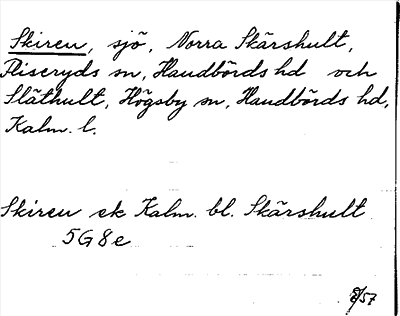 Skiren, sjö, Norra Skärshult,
Fliseryds sn, Handbörds hd och
Släthult, Högsby sn, Handbörds hd,
Kalm. l.
Skiren ek Kalm. bl. Skärshult
5G8e
/57